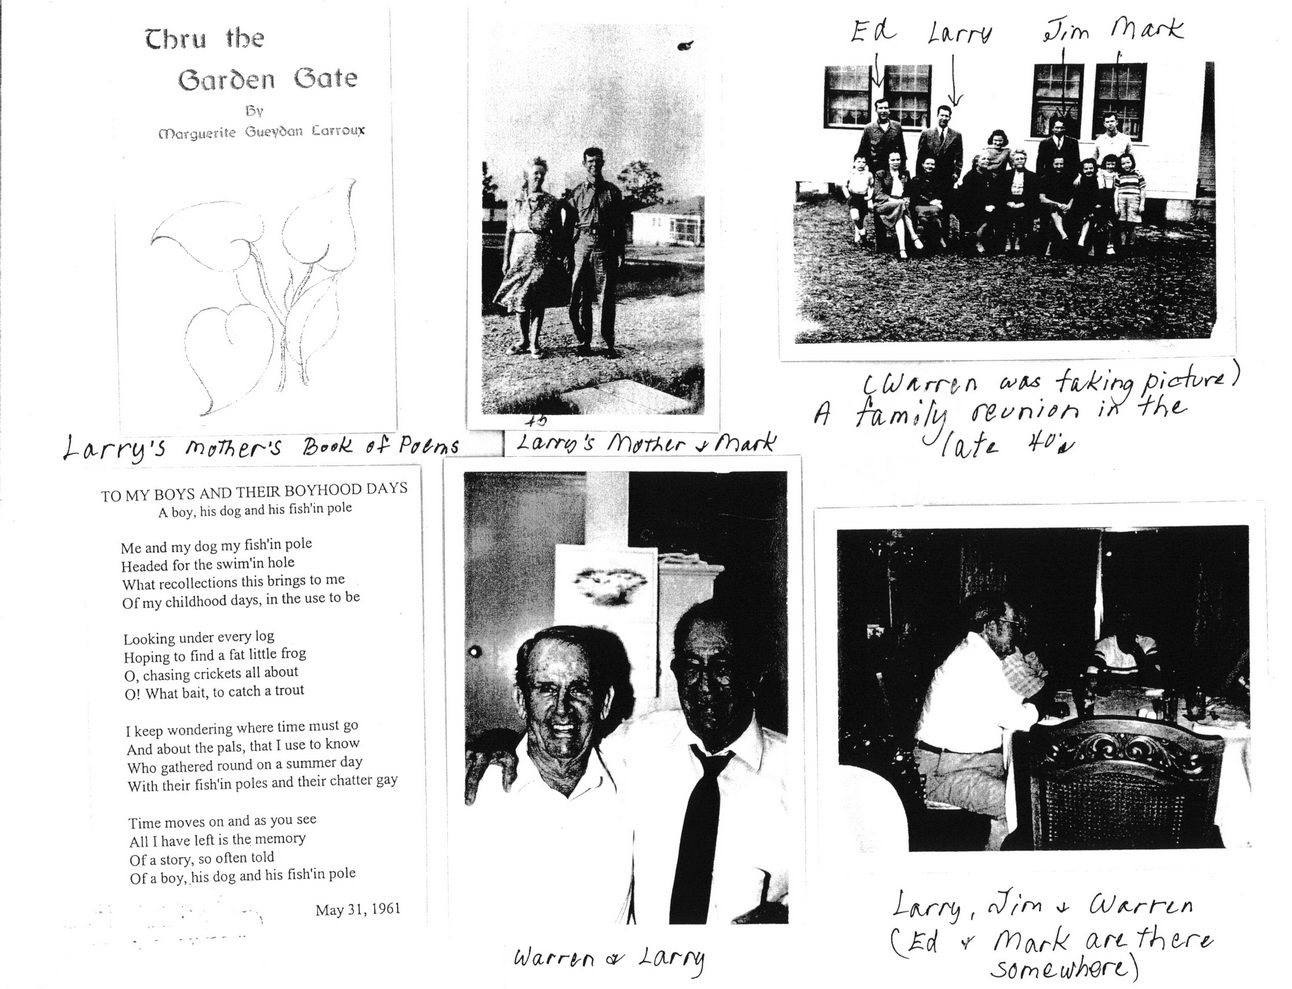 Thru the
Garden Gate
By
Marguerite Gueydan Larroux
Larry's Mother's Book of Poems
45
Larry's Mother & Mark
Ed Larry Jim Mark
(Warren was taking picture)
A family reunion in the
late 40's
TO MY BOYS AND THEIR BOYHOOD DAYS
A boy, his dog and his fish'in pole
Me and my dog my fish'in pole
Headed for the swim'in hole
What recollections this brings to me
Of my childhood days, in the use to be
Looking under every log
Hoping to find a fat little frog
O, chasing crickets all about
O! What bait, to catch a trout
I keep wondering where time must go
And about the pals, that I use to know
Who gathered round on a summer day
With their fish'in poles and their chatter gay
Time moves on and as you see
All I have left is the memory
Of a story, so often told
Of a boy, his dog and his fish'in pole
May 31, 1961
Warren & Larry
Larry, Jim & Warren
(Ed & Mark are there
somewhere)